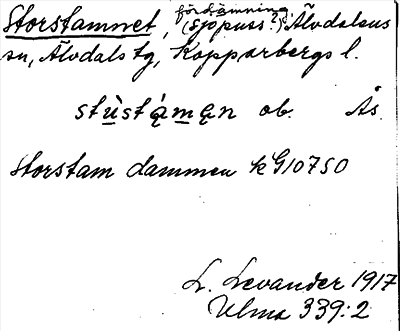 fördämning
Storstamnet, (sjpuss?) Älvdalens
sn, Älvdals tg, Kopparbergs l.
stùstáman ob. Ås.
Storstam dammen kG10750
L. Levander 1917
Ulma 339:2